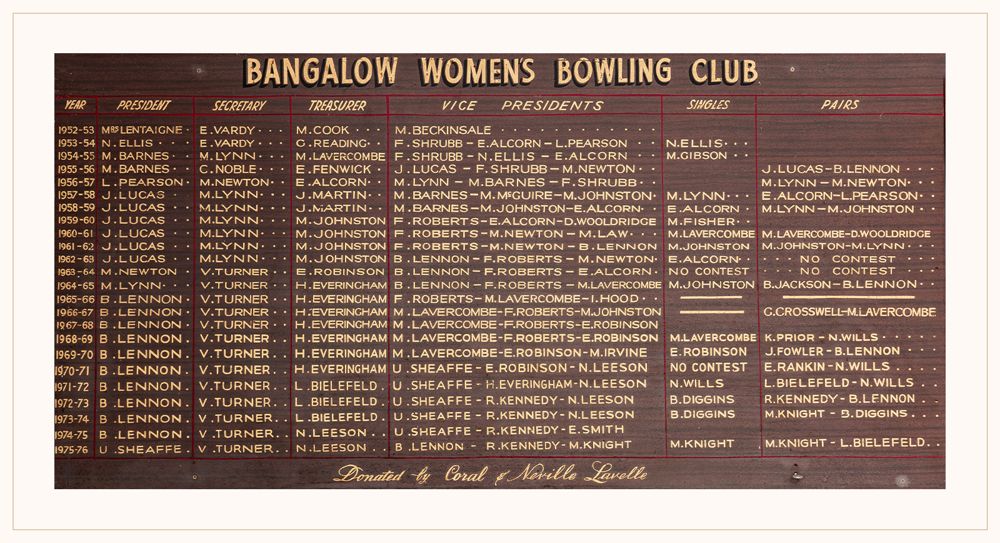 BANGALOW WOMEN'S BOWLING CLUB
YEAR PRESIDENT SECRETARY TREASURER VICE PRESIDENTS SINGLES PAIRS
1952-53 MRS LENTAIGNE E.VARDY M.COOK M.BECKINSALE
1953-54 N.ELLIS E.VARDY G.READING F.SHRUBB-E.ALCORN-L.PEARSON N.ELLIS
1954-55 M.BARNES M.LYNN M.LAVERCOMBE F.SHRUBB-N.ELLIS-E.ALCORN M.GIBSON
1955-56 M.BARNES C.NOBLE E.FENWICK J.LUCAS-F.SHRUBB-M.NEWTON J.LUCAS-B.LENNON
1956-57 L.PEARSON M.NEWTON E.ALCORN M.LYNN-M.BARNES-F.SHRUBB M.LYNN-M.NEWTON
1957-58 J.LUCAS M.LYNN J.MARTIN M.BARNES-M.McGUIRE-M.JOHNSTON M.LYNN E.ALCORN-L.PEARSON
1958-59 J.LUCAS M.LYNN J.MARTIN M.BARNES-M.JOHNSTON-E.ALCORN E.ALCORN M.LYNN-M.JOHNSTON
1959-60 J.LUCAS M.LYNN M.JOHNSTON F.ROBERTS-E.ALCORN-D.WOOLDRIDGE M.FISHER
1960-61 J.LUCAS M.LYNN M.JOHNSTON F.ROBERTS-M.NEWTON-M.LAW M.LAVERCOMBE M.LAVERCOMBE-D.WOOLDRIDGE
1961-62 J.LUCAS M.LYNN M.JOHNSTON F.ROBERTS-M.NEWTON-B.LENNON M.JOHNSTON M.JOHNSTON-M.LYNN
1962-63 J.LUCAS M.LYNN M.JOHNSTON B.LENNON-F.ROBERTS-M.NEWTON E.ALCORN NO CONTEST
1963-64 M.NEWTON V.TURNER E.ROBINSON B.LENNON-F.ROBERTS-E.ALCORN NO CONTEST NO CONTEST
1964-65 M.LYNN V.TURNER H.EVERINGHAM B.LENNON-F.ROBERTS-M.LAVERCOMBE M.JOHNSTON B.JACKSON-B.LENNON
1965-66 B.LENNON V.TURNER H.EVERINGHAM F.ROBERTS-M.LAVERCOMBE-I.HOOD
1966-67 B.LENNON V.TURNER H.EVERINGHAM M.LAVERCOMBE-F.ROBERTS-M.JOHNSTON G.CROSSWELL-M.LAVERCOMBE
1967-68 B.LENNON V.TURNER H.EVERINGHAM M.LAVERCOMBE-F.ROBERTS-E.ROBINSON
1968-69 B.LENNON V.TURNER H.EVERINGHAM M.LAVERCOMBE-F.ROBERTS-E.ROBINSON M.LAVERCOMBE K.PRIOR-N.WILLS
1969-70 B.LENNON V.TURNER H.EVERINGHAM M.LAVERCOMBE-E.ROBINSON-M.IRVINE E.ROBINSON J.FOWLER-B.LENNON
1970-71 B.LENNON V.TURNER H.EVERINGHAM U.SHEAFFE-E.ROBINSON-N.LEESON NO CONTEST E.RANKIN-N.WILLS
1971-72 B.LENNON V.TURNER L.BIELEFELD U.SHEAFFE-H.EVERINGHAM-N.LEESON N.WILLS L.BIELEFELD-N.WILLS
1972-73 B.LENNON V.TURNER L.BIELEFELD U.SHEAFFE-R.KENNEDY-N.LEESON B.DIGGINS R.KENNEDY-B.LENNON
1973-74 B.LENNON V.TURNER L.BIELEFELD U.SHEAFFE-R.KENNEDY-N.LEESON B.DIGGINS M.KNIGHT-B.DIGGINS
1974-75 B.LENNON V.TURNER N.LEESON U.SHEAFFE-R.KENNEDY-E.SMITH
1975-76 U.SHEAFFE V.TURNER N.LEESON B.LENNON-R.KENNEDY-M.KNIGHT M.KNIGHT M.KNIGHT-L.BIELEFELD
Donated by Coral & Neville Lavelle